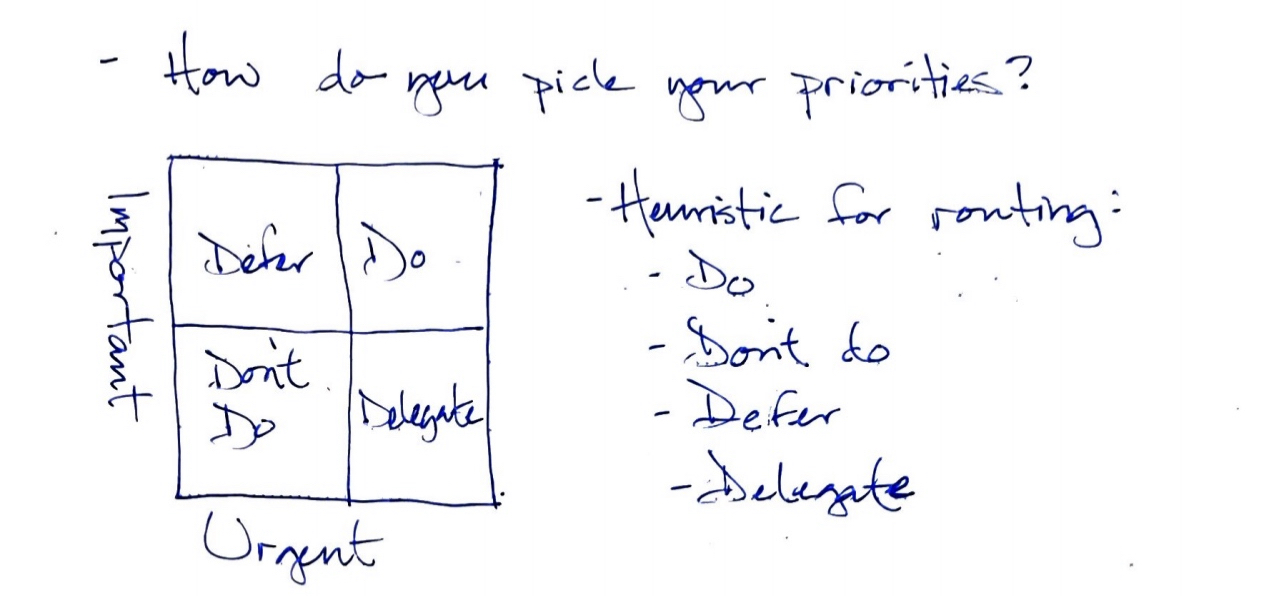 - How do you pick your priorities?
Important
Defer
Do
Don't
Do
Delegate
Urgent
- Heuristic for routing:
- Do
- Don't do
- Defer
- Delegate